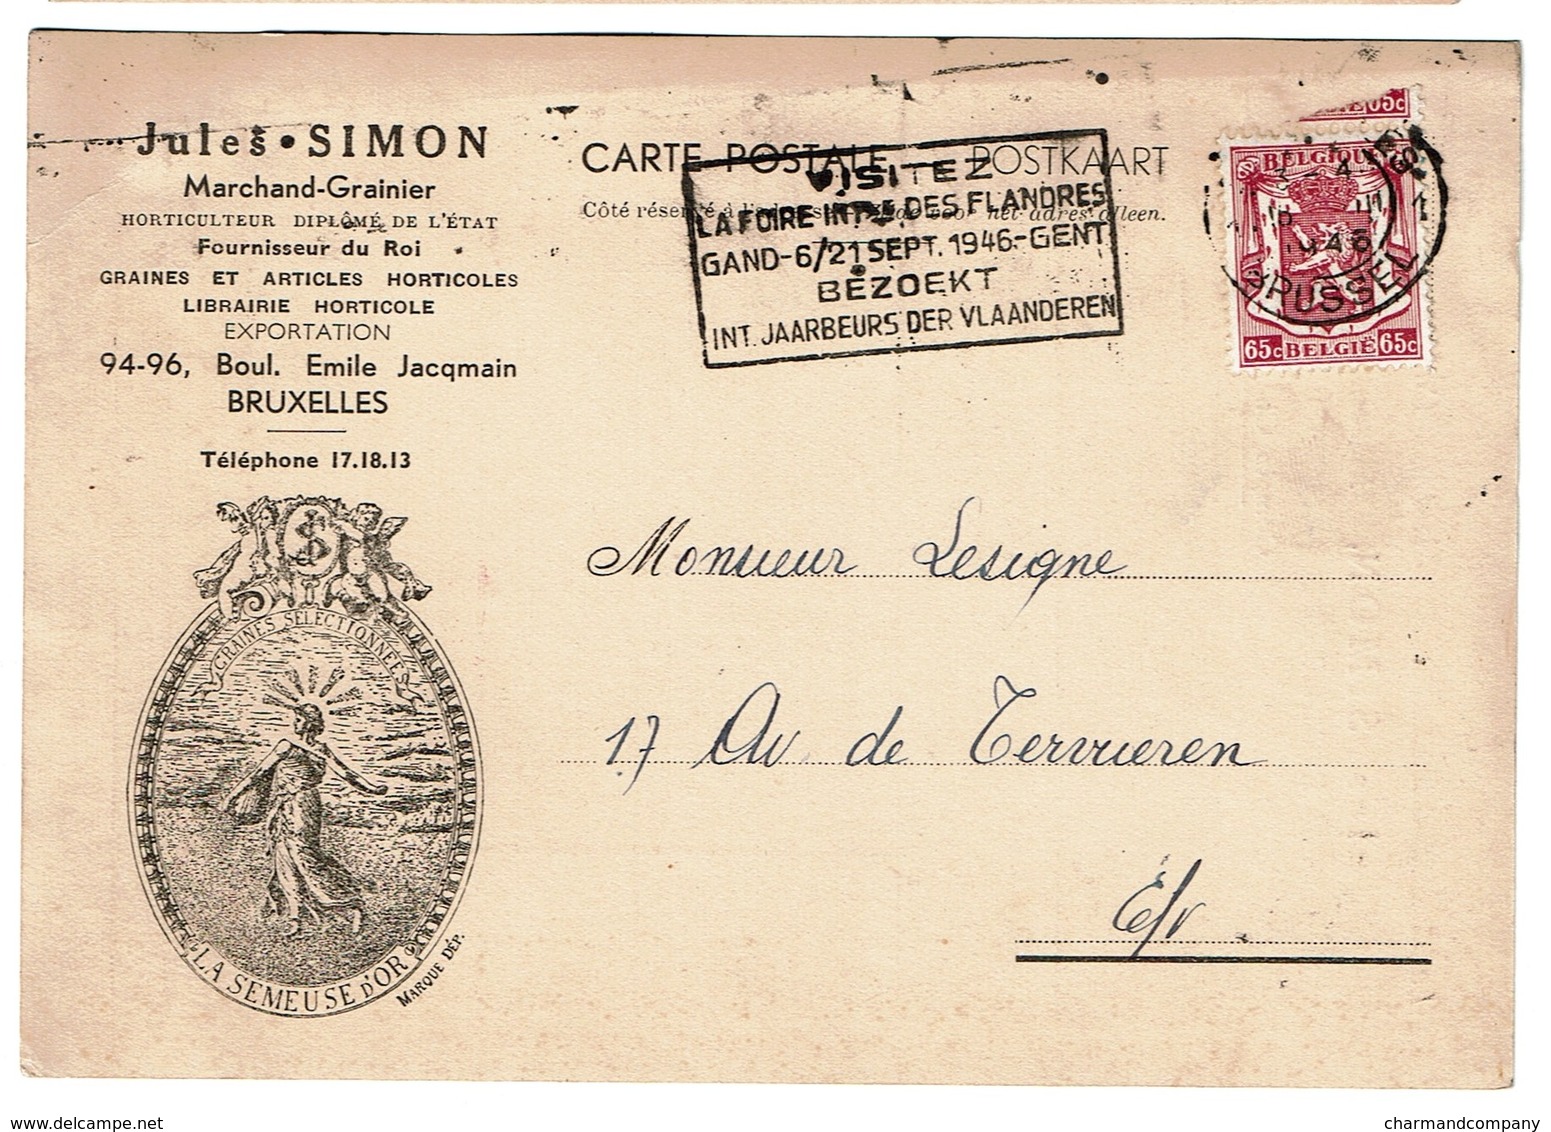 Jules • SIMON
Marchand-Grainier
HORTICULTEUR DIPLÔMÉ DE L'ÉTAT
Fournisseur du Roi
GRAINES ET ARTICLES HORTICOLES
LIBRAIRIE HORTICOLE
EXPORTATION
94-96, Boul. Emile Jacqmain
BRUXELLES
Téléphone 17.18.13
JS
GRAINES SÉLECTIONNÉES
"LA SEMEUSE D'OR"
MARQUE DÉP.
CARTE POSTALE POSTKAART
Côté réservé à l'adresse voor het adres alleen.
VISITEZ
LA FOIRE INT. DES FLANDRES
GAND-6/21 SEPT. 1946.-GENT
BEZOEKT
INT. JAARBEURS DER VLAANDEREN
65c
BELGIQUE
65c BELGIË 65c
3-4
1946
BRUSSEL 1
Monsieur Lesigne
17 Av de Tervueren
E/v
www.delcampe.net
charmandcompany